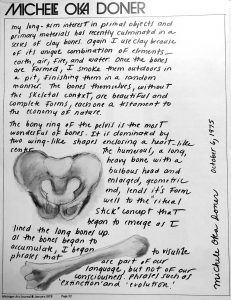 MICHELE OKA DONER
my long-term interest in primal objects and
primary materials has recently culminated in a
series of clay bones. Again I use clay because
of its unique combination of elements—
earth, air, fire, and water. Once the bones
are formed, I smoke them outdoors in
a pit, finishing them in a random
manner. The bones themselves, without
skeletal context, are beautiful and
complete forms, each one a testament to
the economy of nature.
The bony ring of the pelvis is the most
wonderful of bones. It is dominated by
two wing-like shapes enclosing a heart-like
center. The humerus, a long,
heavy bone with a
bulbous head and
enlarged, geometric
end, lends its form
well to the "ritual
stick" concept that
began to emerge as I
lined the long bones up.
As the bones began to
accumulate, I began to visualize
phrases that are part of our
language, but not of our
consciousness. Phrases such as
"extinction" and "evolution."
michele oka doner
october 6, 1975
Michigan Art Journal January 1976 Page 12